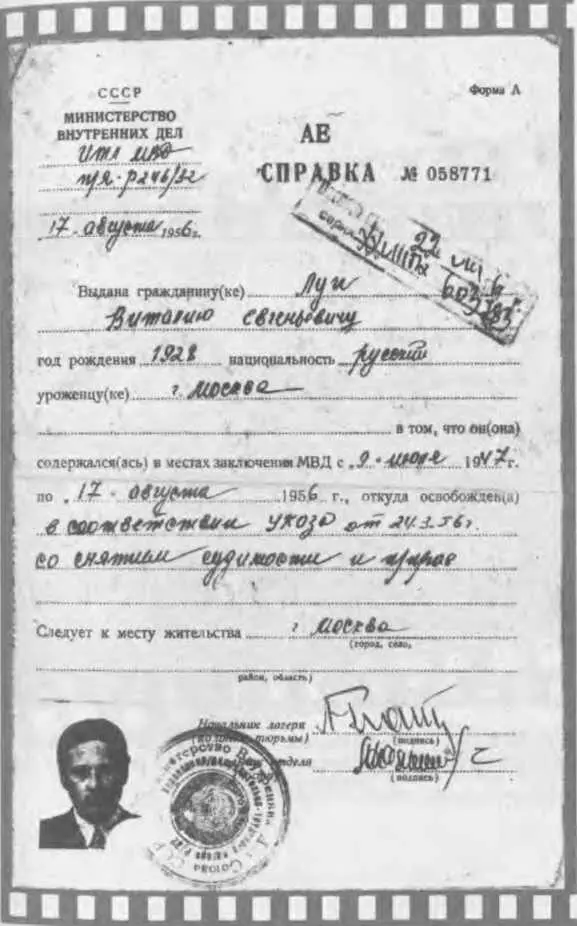 СССР
Форма А
МИНИСТЕРСТВО
ВНУТРЕННИХ ДЕЛ
ИТЛ МВД
п/я-Р246/
АЕ
СПРАВКА № 058771
17 - августа 1956г.
серия
22 VIII 6
603
Выдана гражданину(ке)
Виталию Евгеньевичу
год рождения 1928 национальность русский
уроженцу(ке) г. Москва
в том, что он(она)
содержался(ась) в местах заключения МВД с „9 - июля 1947г.
по „17 - августа 1956 г., откуда освобожден(а)
в соответствии указа от 24.3.56г.
со снятием судимости и
Следует к месту жительства г Москва
(город, село,
район, область)
Начальник лагеря
(колонии, тюрьмы)
(подпись)
отдела
(подпись)
Министерство
СССР